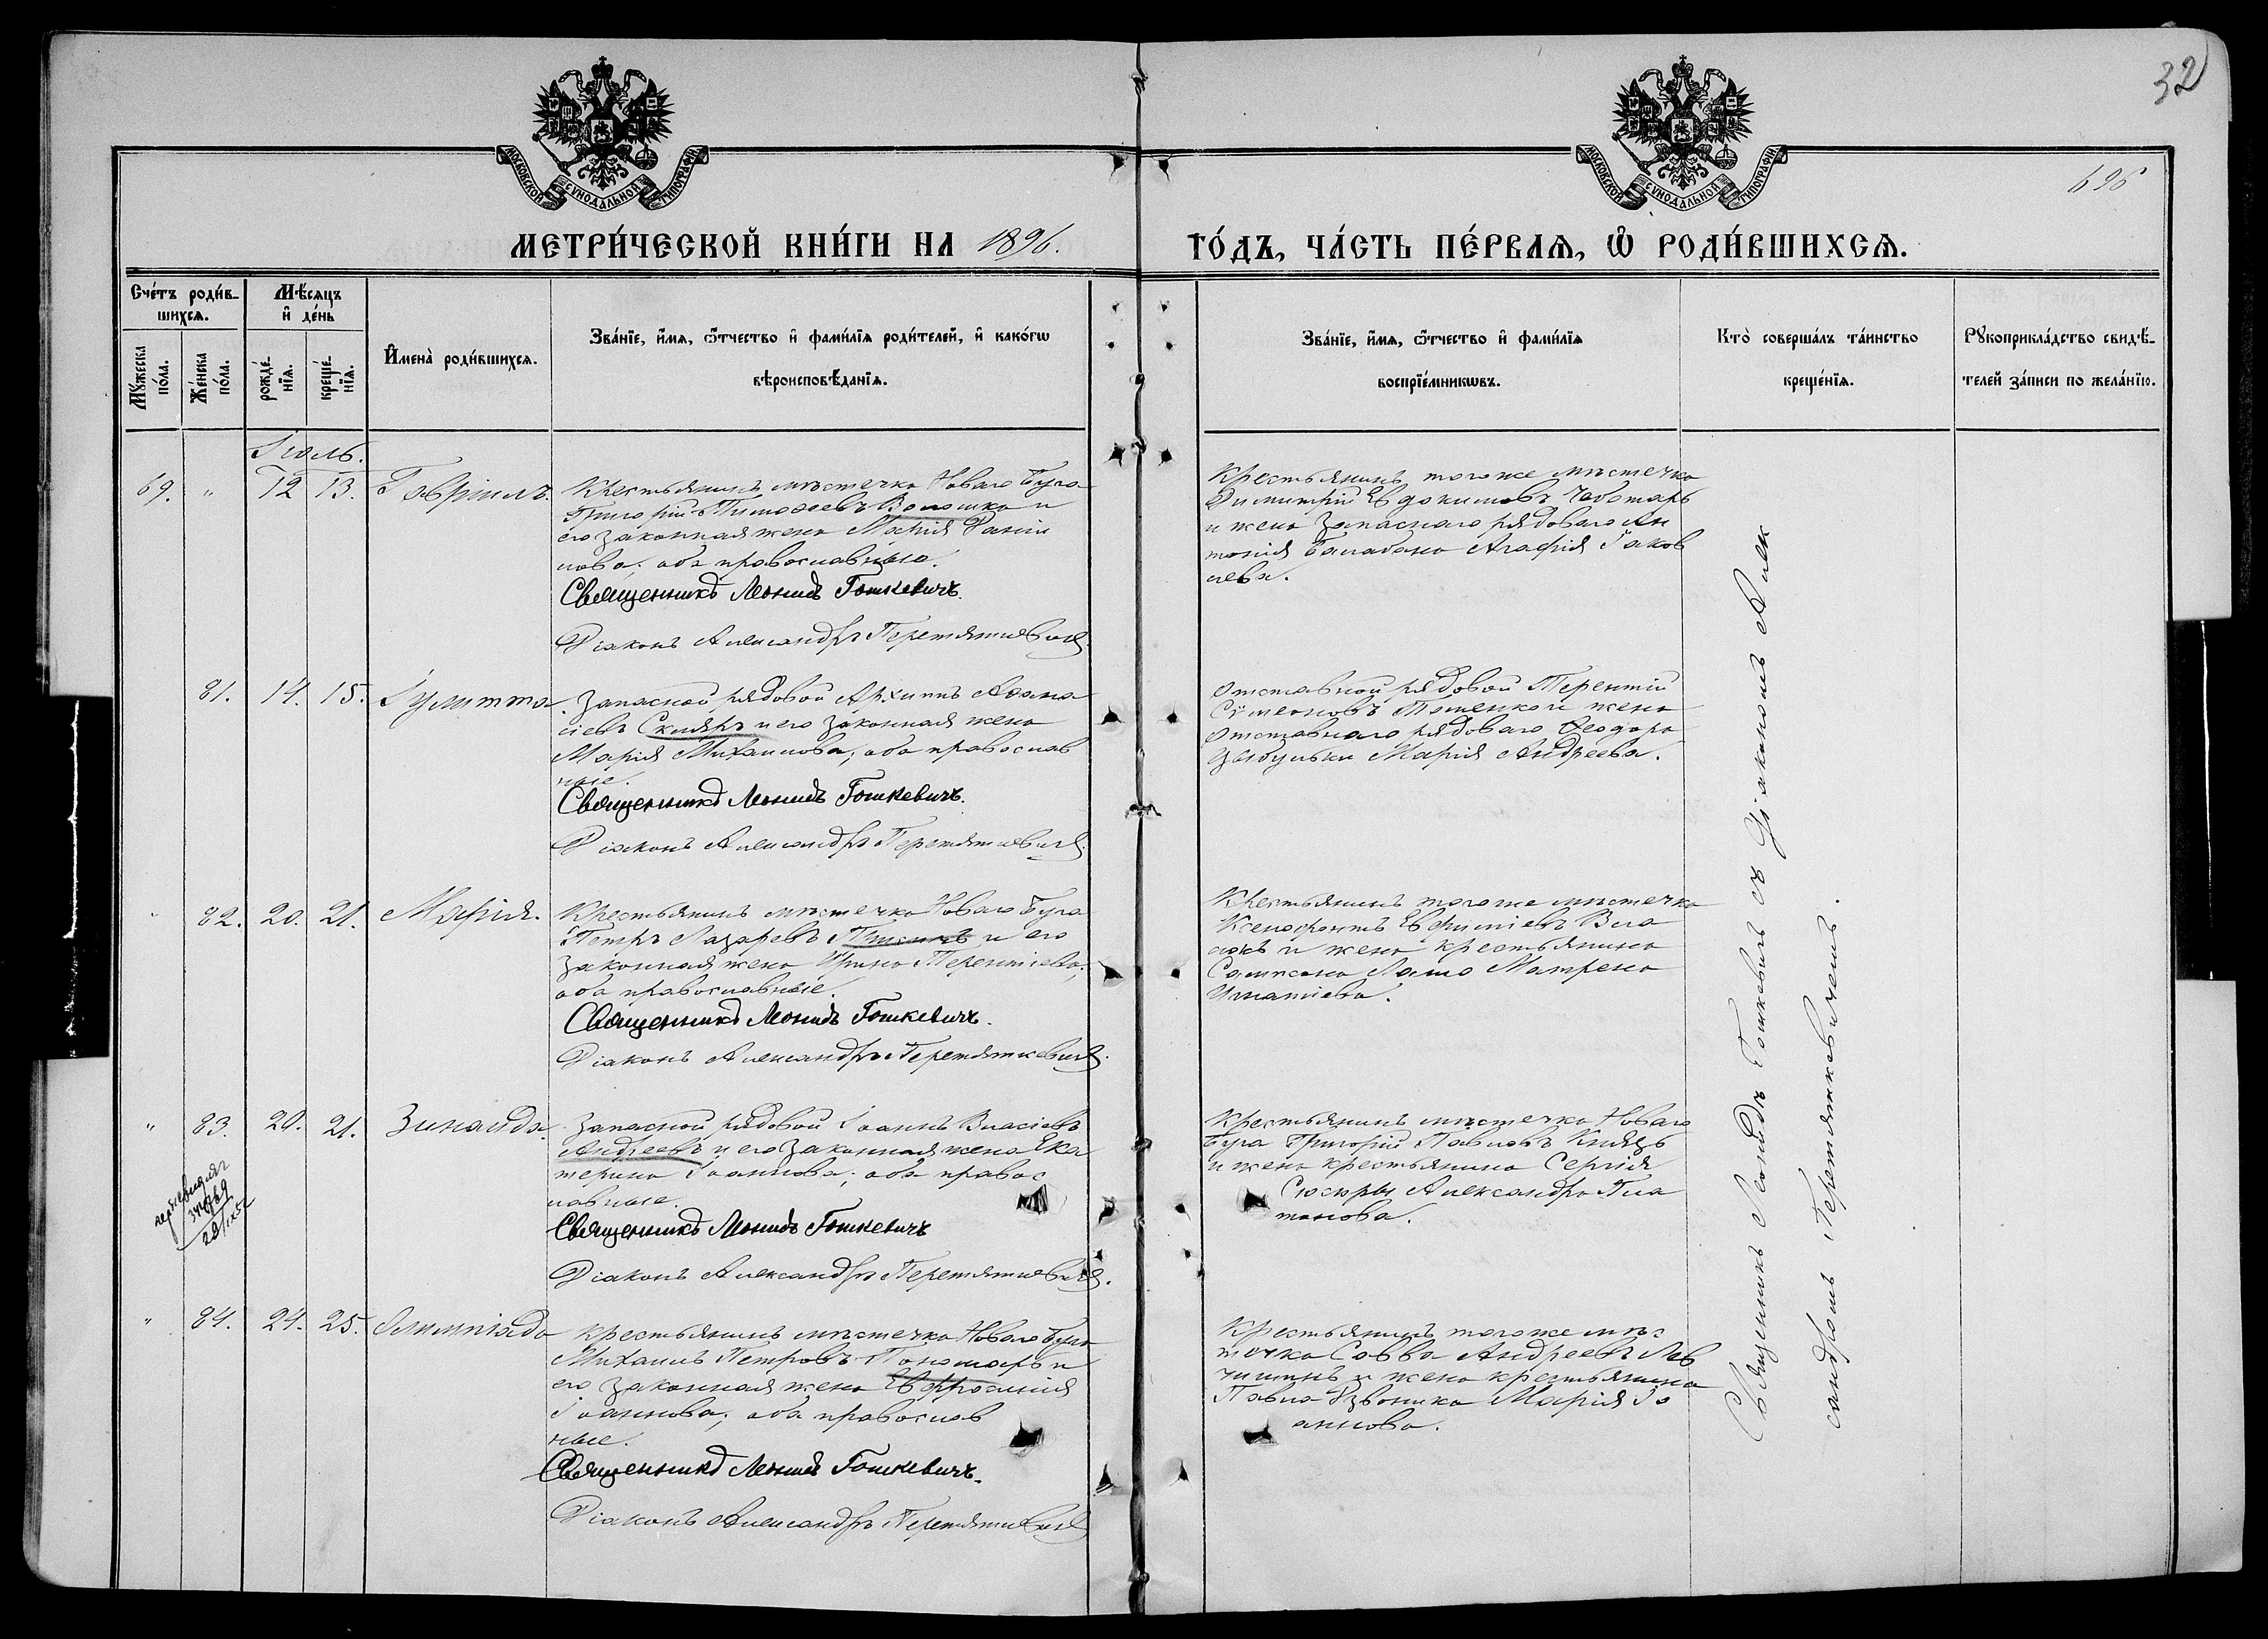 32
696
МОСКОВСКОЙ СѴНОДАЛЬНОЙ ТИПОГРАФІИ
МОСКОВСКОЙ СѴНОДАЛЬНОЙ ТИПОГРАФІИ
МЕТРИ́ЧЕСКОЙ КНИ́ГИ НА 1896.
ГО́ДЪ, ЧА́СТЬ ПЕ́РВАѦ, Ѡ҆ РОДИ́ВШИХСѦ.
Сче́тъ роди́в-
шихсѧ.
Мѣ́сѧцъ
и҆ де́нь
Мꙋ́жеска
по́ла.
Же́нска
по́ла.
рожде́-
нїѧ.
креще́-
нїѧ.
И҆мена̀ роди́вшихсѧ.
Зва́нїе, и҆́мѧ, ѻ҆́тчество и҆ фами́лїѧ роди́телей, и҆ како́гѡ
вѣроисповѣ́данїѧ.
Зва́нїе, и҆́мѧ, ѻ҆́тчество и҆ фами́лїѧ
воспрїе́мникѡвъ.
Кто̀ соверша́лъ та́инство
креще́нїѧ.
Рꙋкоприкла́дство свидѣ́-
телей за́писи по жела́нїю.
Іюль.
69. " 12 13. Гавріилъ.
Крестьянинъ мѣстечка Новаго Буга
Григорій Тимоѳеевъ Волошко и
его законная жена Марія Дани
лова, оба православные.
Священникъ Леонидъ Гошкевичъ.
Діаконъ Александръ Перетятковичъ
Крестьянинъ того же мѣстечка
Димитрій Евдокимовъ Чеботарь
и жена запаснаго рядоваго Ан
тонія Балабана Агафія Іаков
лева.
81. 14. 15. Іулитта.
Запасной рядовой Архипъ Аѳана
сіевъ Скляръ и его законная жена
Марія Михаилова; оба православ
ные.
Священникъ Леонидъ Гошкевичъ.
Діаконъ Александръ Перетятковичъ
Отставной рядовой Терентій
Сѵмеоновъ и жена
отставнаго рядоваго Ѳеодора
Цыбульки Марія Андреева.
" 82. 20. 21. Марія.
Крестьянинъ мѣстечка Новаго Буга
Петръ Лазаревъ и его
законная жена Ирина Терентіева,
оба православные.
Священникъ Леонидъ Гошкевичъ.
Діаконъ Александръ Перетятковичъ.
Крестьянинъ того же мѣстечка
Ксенофонтъ Евфиміевъ
и жена крестьянина
Сампсона Матрена
Игнатіева.
" 83. 20. 21. Зинаида.
Запасной рядовой Іоаннъ Власіевъ
Андреевъ и его законная жена Ека
терина Іоаннова; оба правос
лавные.
Священникъ Леонидъ Гошкевичъ
Діаконъ Александръ Перетятковичъ.
Крестьянинъ мѣстечка Новаго
Буга Григорій Павловъ Князь
и жена крестьянина Сергія
Сюсюры Александра Пла
тонова.
" 84. 24. 25. Олимпіада
Крестьянинъ мѣстечка Новаго Буга
Михаилъ Петровъ Пономарь и
его законная жена Евфросинія
Іоаннова; оба православ
ные.
Священникъ Леонидъ Гошкевичъ.
Діаконъ Александръ Перетятковичъ
Крестьянинъ того же мѣс
течка Савва Андреевъ
и жена крестьянина
Павла Марія Іо
аннова.
Священникъ Леонидъ Гошкевичъ съ Діакономъ Алек
сандромъ Перетятковичемъ.